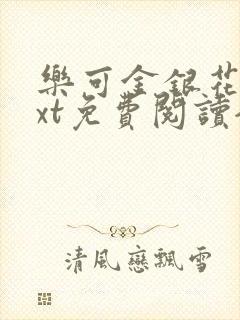 樂可金銀花
xt免費閱讀
清風戀飄雪